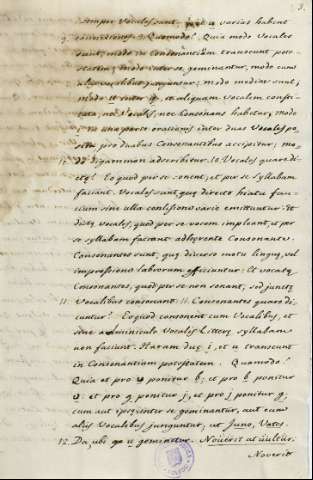 3.
semper Vocales sunt, i et u varias habent
9. connexiones. 9. Quomodo? Quia modo Vocales
sunt; modo in Consonantium transeunt potes-
tatem; modo inter se geminantur, modo cum
alijs vocalibus junguntur; modo mediae sunt,
modo et inter q, et aliquam vocalem constitu-
ta, nec Vocalis, nec Consonans habetur, modo
i in una parte orationis inter duas Vocales po-
sita pro duabus Consonantibus accipitur; mo-
do digammon adscribitur. 10. Vocales quare di-
ctę? Eo quod per se sonent, et per se syllabam
faciant. Vocales sunt quę directo hiatu fau-
cium sine ulla conlisione varie emittuntur. Et
dictę vocales, quod per se vocem impleant, et per
se syllabam faciant adhęrente Consonante.
Consonantes sunt, quę diverso motu linguę, vel
impressione labrorum efficiuntur. Et vocatę
Consonantes, quod per se non sonant, sed junctę
11. Vocalibus consonant. 11. Consonantes quare di-
cuntur? Eo quod consonent cum Vocalibus, et
sine adminiculo Vocalis litterę syllabam
non faciunt. Harum duę i, et u transeunt
in Consonantium potestatem. Quomodo?
Quia et pro u ponitur b, et pro b ponitur
u. et pro g ponitur j, et pro j ponitur g;
cum aut ipsę inter se geminantur, aut cum
alijs Vocalibus junguntur, ut Juno, Vates.
12. Da, ubi u geminetur. Noverit ut vultur.
Noverit